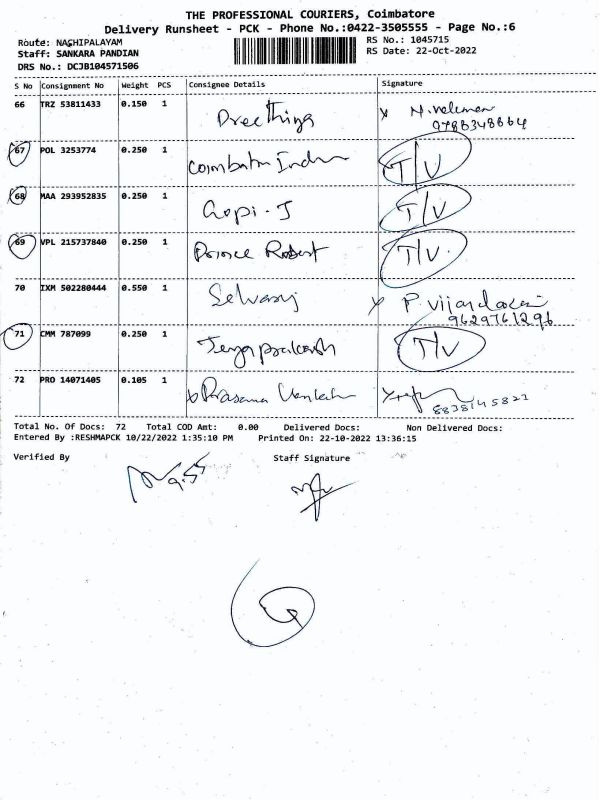 THE PROFESSIONAL COURIERS, Coimbatore
Delivery Runsheet - PCK - Phone No.:0422-3505555 - Page No.:6
Route: NACHIPALAYAM
RS No.: 1045715
Staff: SANKARA PANDIAN
RS Date: 22-Oct-2022
DRS No.: DCJB104571506
S No Consignment No Weight PCS Consignee Details Signature
66 TRZ 53811433 0.150 1 Preethiya
9786348664
67 POL 3253774 0.250 1 Coimbatore T/V
68 MAA 293952835 0.250 1 Gopi. J T/V
69 VPL 215737840 0.250 1 Prince Robert T/V.
70 IXM 502280444 0.550 1 Selvaraj P. 
9629761296
71 CMM 787099 0.250 1 Jeyaprakash T/V
72 PRO 14071405 0.105 1 Prasanna
8838145822
Total No. Of Docs: 72 Total COD Amt: 0.00 Delivered Docs: Non Delivered Docs:
Entered By :RESHMAPCK 10/22/2022 1:35:10 PM Printed On: 22-10-2022 13:36:15
Verified By Staff Signature